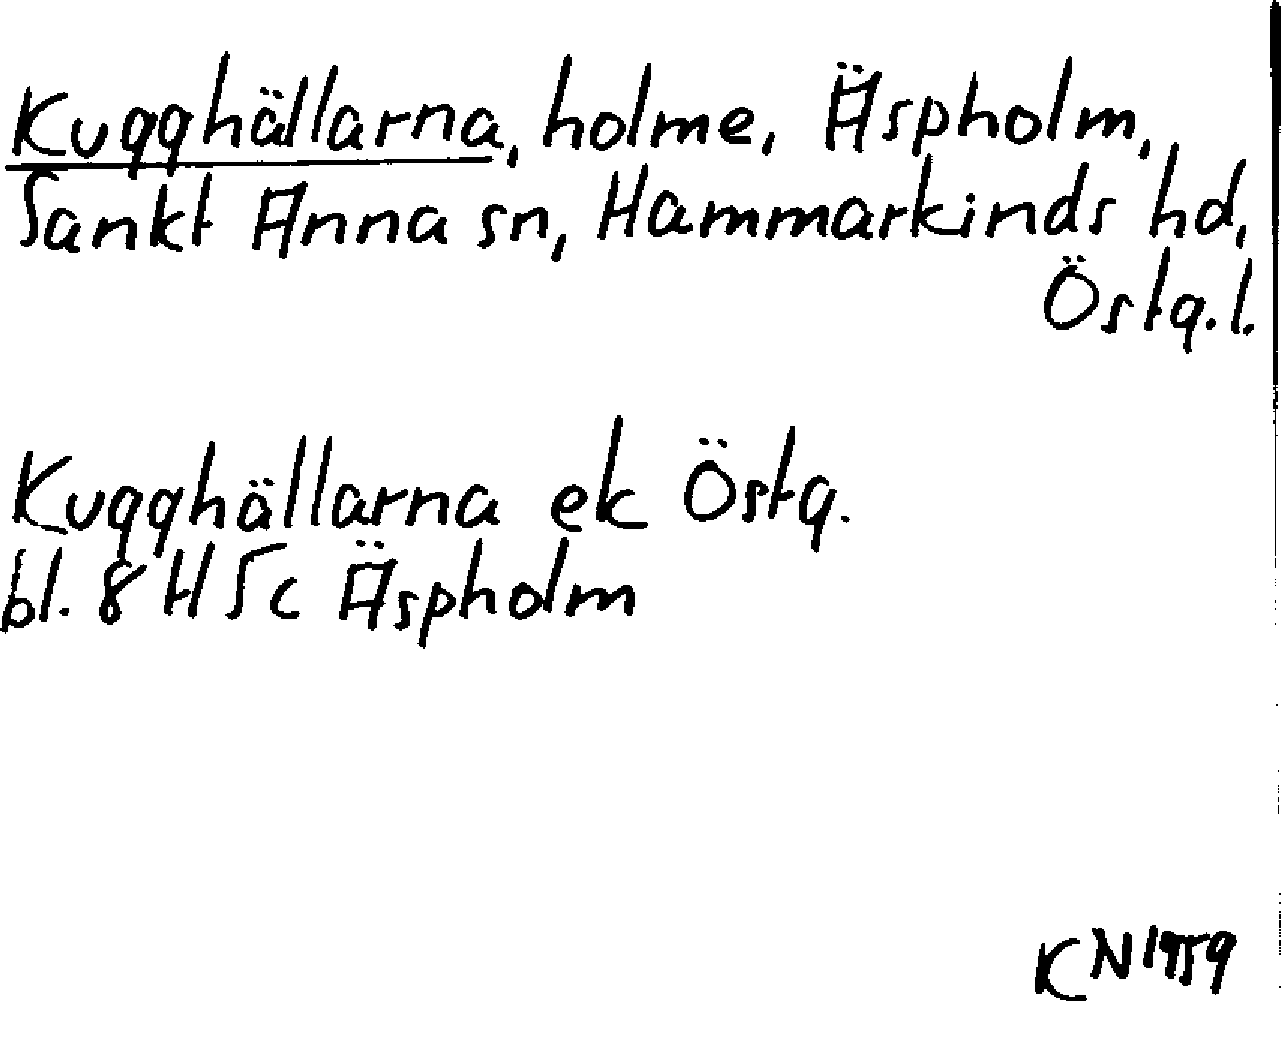 Kugghällarna, holme, Äspholm,
Sankt Anna sn, Hammarkinds hd,
Östg. l.
Kugghällarna ek Östg.
bl. 8 H 5c Äspholm
KN 1959